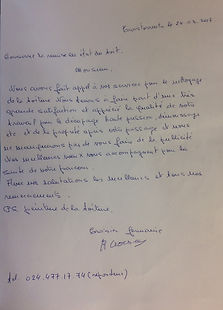 Concerne la remise en état du toit.
Monsieur,
Nous avons fait appel à vos services pour le nettoyage
de la toiture. Nous tenons à faire part d'une très
grande satisfaction et apprécier la qualité de votre
travail pour le décapage haute pression, demoussage
etc et de la propreté après votre passage et nous
ne manquerons pas de vous faire de la publicité
Nos meilleurs vœux vous accompagnent pour la
suite de votre parcours.
Avec nos salutations les meilleures et tous nos
remerciements.
peinture de la toiture.
tel. 024.477.17.74 (répondeur)